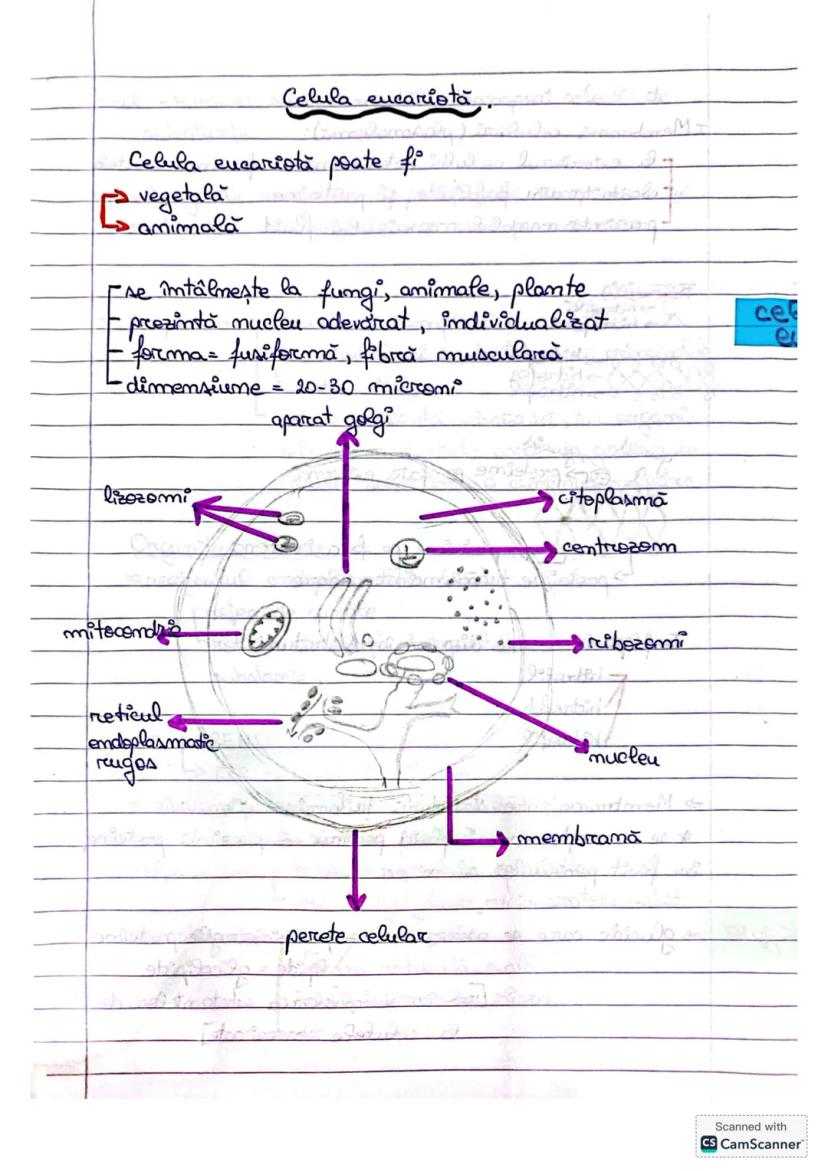 Celula eucariotă.
Celula eucariotă poate fi
vegetală
animală
se întâlnește la fungi, animale, plante
prezintă nucleu adevărat, individualizat
forma = fusiformă, fibră musculară
dimensiune = 20-30 microni
aparat golgi
lizozomi
citoplasmă
centrozom
mitocondrie
ribozomi
reticul
endoplasmatic
rugos
nucleu
membrană
perete celular
Scanned with
CS CamScanner